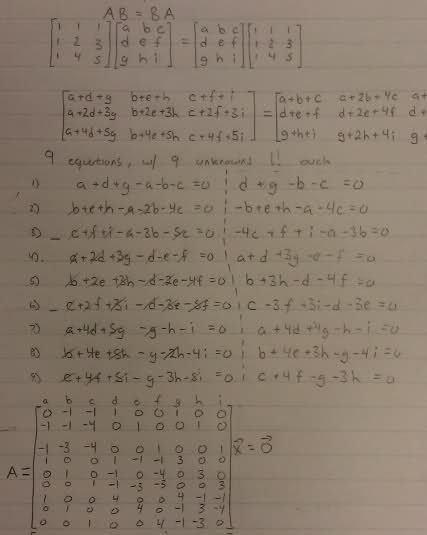 AB = BA
[1 1 1 [a b c = [a b c [1 1 1
1 2 3 d e f d e f 1 2 3
1 4 5] g h i] g h i] 1 4 5]
[a+d+g b+e+h c+f+i ] = [a+b+c a+2b+4c a+
a+2d+3g b+2e+3h c+2f+3i d+e+f d+2e+4f d+
a+4d+5g b+4e+5h c+4f+5i] g+h+i g+2h+4i g+
9 equations, w/ 9 unknowns !! ouch
1) a+d+g-a-b-c=0 | d+g-b-c=0
2) b+e+h-a-2b-4c=0 | -b+e+h-a-4c=0
3) c+f+i-a-3b-5c=0 | -4c+f+i-a-3b=0
4) a+2d+3g-d-e-f=0 | a+d+3g-e-f=0
5) b+2e+3h-d-2e-4f=0 | b+3h-d-4f=0
6) c+2f+3i-d-3e-5f=0 | c-3f+3i-d-3e=0
7) a+4d+5g-g-h-i=0 | a+4d+4g-h-i=0
8) b+4e+5h-g-2h-4i=0 | b+4e+3h-g-4i=0
9) c+4f+5i-g-3h-5i=0 | c+4f-g-3h=0
a b c d e f g h i
0 -1 -1 1 0 0 1 0 0
-1 -1 -4 0 1 0 0 1 0
-1 -3 -4 0 0 1 0 0 1
1 0 0 1 -1 -1 3 0 0
A = 0 1 0 -1 0 -4 0 3 0 x⃗ = 0⃗
0 0 1 -1 -3 -3 0 0 3
1 0 0 4 0 0 4 -1 -1
0 1 0 0 4 0 -1 3 -4
0 0 1 0 0 4 -1 -3 0